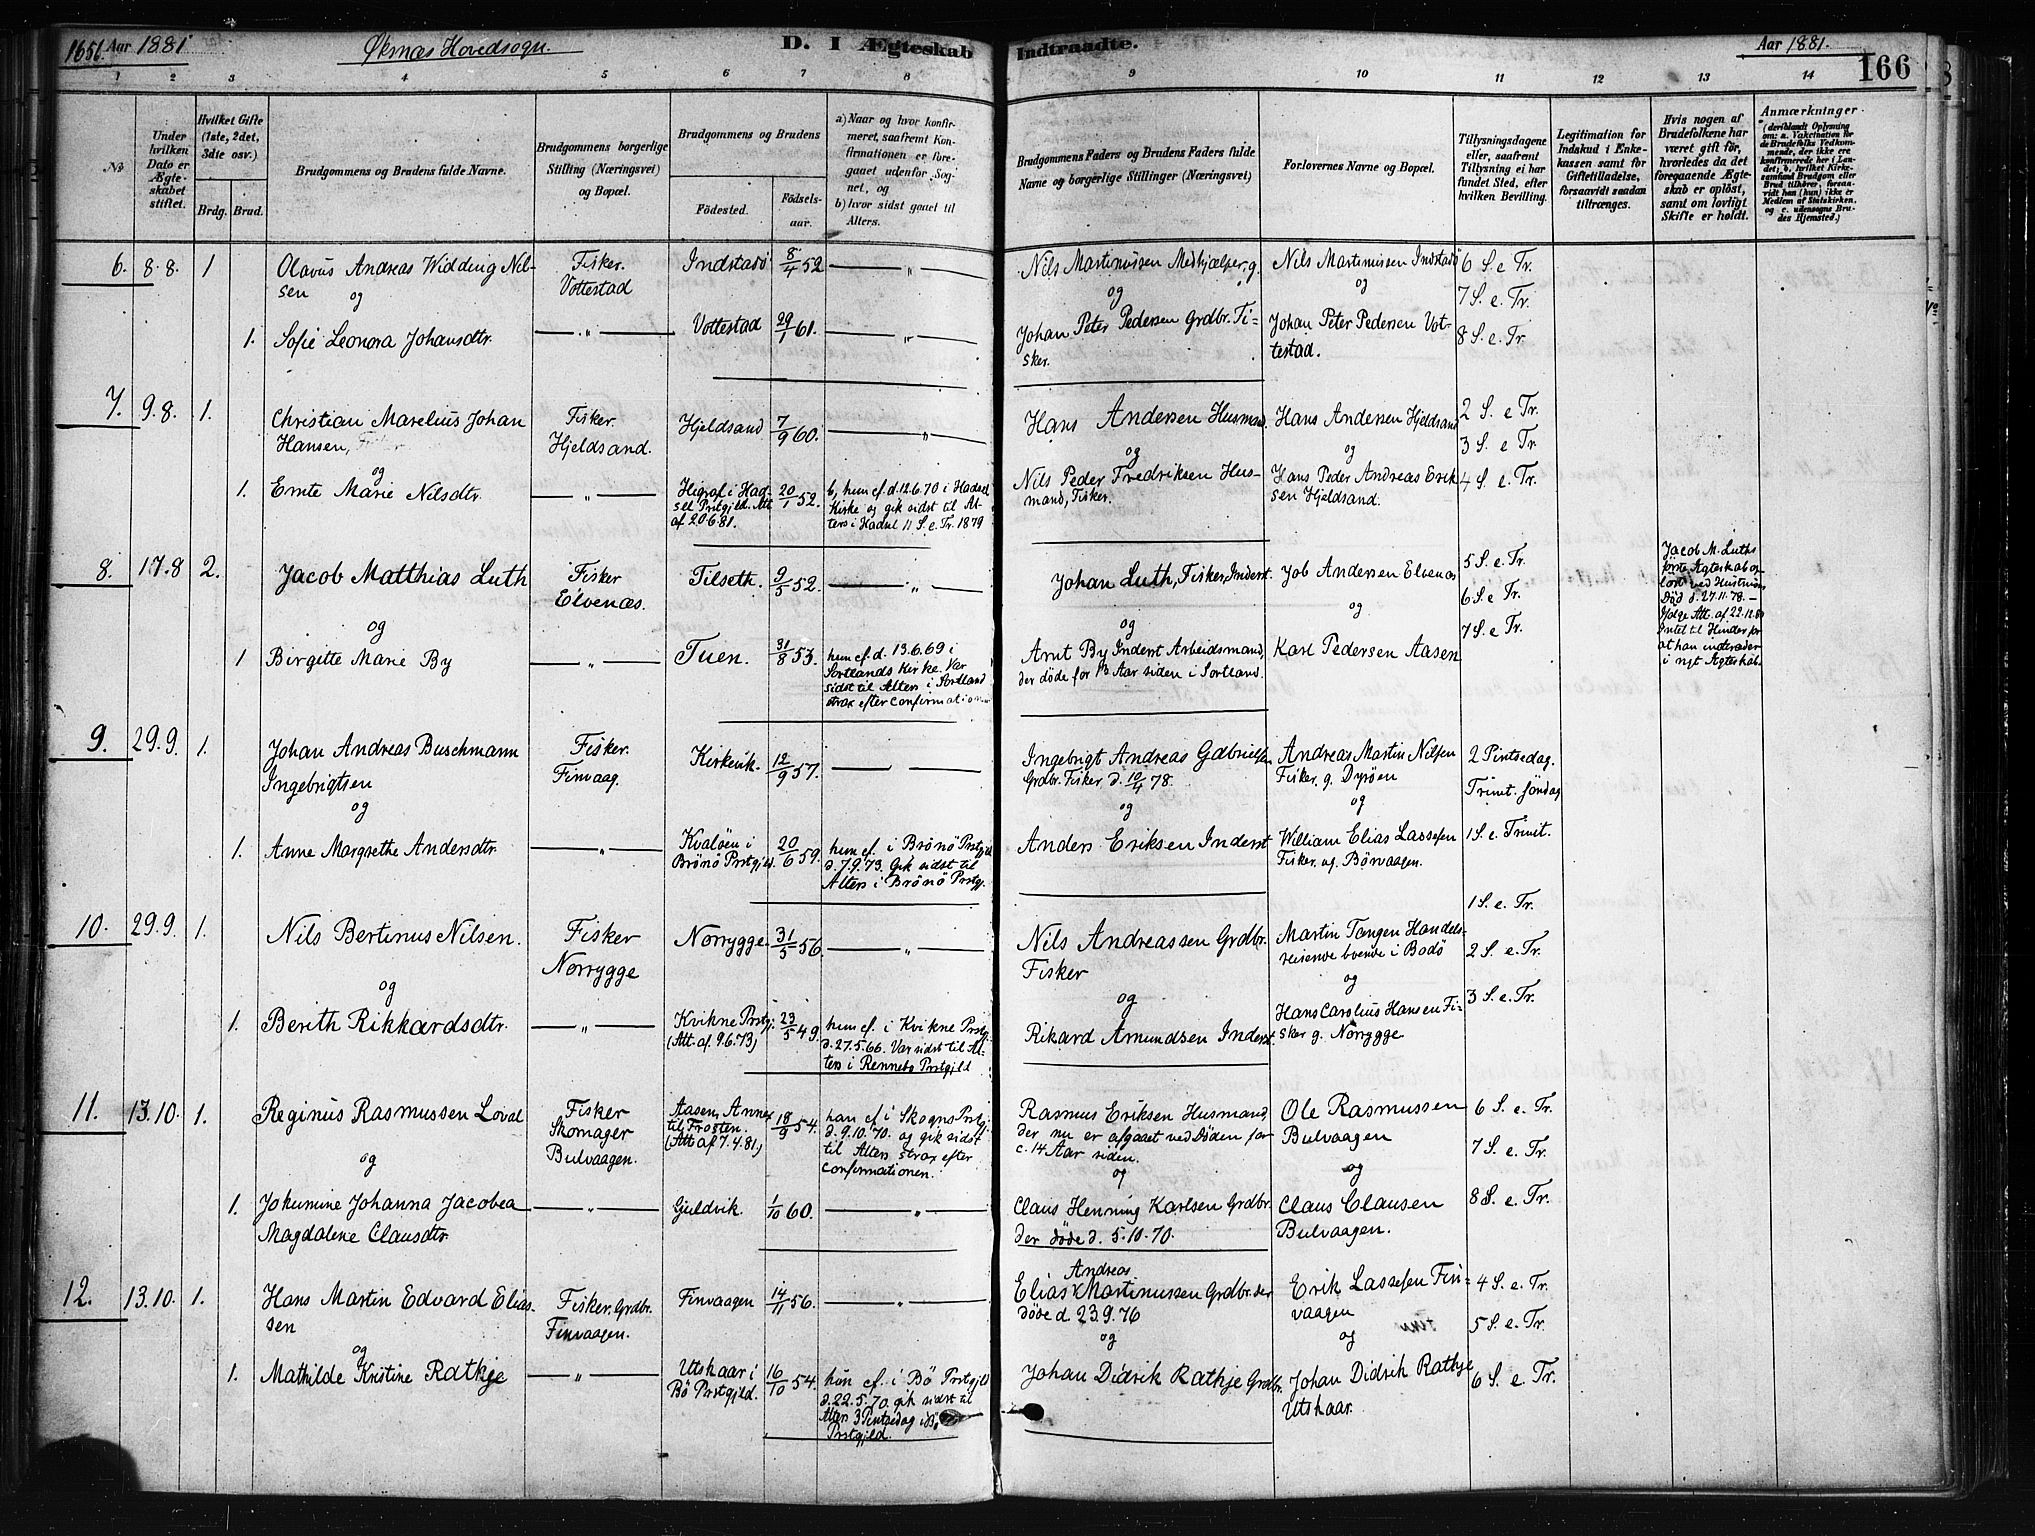 165b. Aar 1881
Øknæs Hovedsogn.
D. I Ægteskab Indtraadte.
Aar 1881.
166
1 2 3 4 5 6 7 8 9 10 11 12 13 14
No
Under hvilken Dato er Ægteskabet stiftet.
Hvilket Gifte (1ste, 2det, 3dte osv.)
Brdg. Brud.
Brudgommens og Brudens fulde Navne.
Brudgommens borgerlige Stilling (Næringsvei) og Bopæl.
Brudgommens og Brudens
Fødested.
Fødselsaar.
a) Naar og hvor konfirmeret, saafremt Konfirmationen er foregaaet udenfor Sognet, og
b) hvor sidst gaaet til Alters.
Brudgommens Faders og Brudens Faders fulde Navne og borgerlige Stillinger (Næringsvei)
Forlovernes Navne og Bopæl.
Tillysningsdagene eller, saafremt Tillysning ei har fundet Sted, efter hvilken Bevilling.
Legitimation for Indskud i Enkekassen samt for Giftetilladelse, forsaavidt saadan tiltrænges.
Hvis nogen af Brudefolkene har været gift før, hvorledes da det foregaaende Ægteskab er opløst, samt om lovligt Skifte er holdt.
Anmærkninger
(deriblandt Oplysning om: a. Vakcination for de Brudefolks Vedkommende, der ikke ere konfirmerede her i Landet; b. hvilket Kirkesamfund Brudgom eller Brud tilhører, forsaavidt han (hun) ikke er Medlem af Statskirken, og c. udensogns Brudes Hjemsted.)
6. 8.8. 1 Olavus Andreas Widding Nilsen
Fisker. Vottestad
Indstasø 8/4 52 — " —
Nils Martinussen Medhjælper, g.
Nils Martinussen Indstasø
6 S. e Tr.
7 S. e. Tr.
8 S. e. Tr.
og
1. Sofie Leonora Johansdtr. — " —
Vottestad 29/1 61. — " —
Johan Peter Pedersen Grdbr. Fisker.
Johan Peter Pedersen Vottestad.
7. 9.8. 1. Christian Marelius Johan Hansen,
Fisker. Hjeldsand.
Hjeldsand 7/9 60. — " —
Hans Andersen Husmand.
Hans Andersen Hjeldsand
2 S. e Tr.
3 S. e Tr
4 S. e. Tr.
og
1. Emte Marie Nilsdtr. — " —
Higraf i Hadsel Prstgjld. Att af 20.6.81.
20/1 52.
b, hun cf. d. 12.6.70 i Hadsel Kirke og gik sidst til Alters i Hadsel 11 S. e. Tr. 1879
Nils Peder Fredriksen Husmand, Fisker.
Hans Peder Andreas Eriksen Hjeldsand.
8. 17.8 2. Jacob Matthias Luth
Fisker Elvenæs.
Tilseth. 9/5 52. — " —
Johan Luth, Fisker, Inderst
Job Andersen Elvenæs
5 S. e. Tr.
6 S. e Tr.
7 S. e Tr.
Jacob M. Luths første Ægteskab opløst ved Hustruens Død d. 27.11.78. — Ifølge Att. af 22.12.80 Intet til Hinder for at han indtræder i nyt Ægteskab.
og
1 Birgitte Marie By — " —
Tuen. 31/8 53.
hun cf. d. 13.6.69 i Sortlands Kirke. Var sidst til Alters i Sortland strax efter confirmationen
Arnt By Inderst Arbeidsmand, der døde for 13 Aar siden i Sortland.
Karl Pedersen Aasen
9. 29.9. 1. Johan Andreas Buschmann Ingebrigtsen
Fisker. Finvaag.
Kirkevik. 12/9 57. — " —
Ingebrigt Andreas Gabrielsen Grdbr. Fisker d. 10/4 78.
Andreas Martin Nilsen Fisker. g. Dyrøen
2 Pintsedag.
Trinit. søndag
1 S. e. Trinit.
og
1. Anne Margrethe Andersdtr. — " —
Kvaløen i Brønø Prstgjld. 20/6 59.
hun cf. i Brønø Prstgjld d. 7.9.73. Gik sidst til Alters i Brønø Prstgj.
Anders Eriksen Inderst
William Elias Lassesen Fisker. og. Børvaagen.
10. 29.9. 1. Nils Bertinus Nilsen.
Fisker Norrygge
Norrygge 31/3 56. — " —
Nils Andreassen Grdbr. Fisker
Martin Tangen Handelsreisende boende i Bodø
1 S. e. Tr.
2 S. e. Tr.
3 S. e. Tr.
og
1. Berith Rikkardsdtr. — " —
Kvikne Prstgj. (Att. af. 9.6.73)
23/5 49.
hun cf. i Kvikne Prstgj. d. 27.5.66. Var sidst til Alters i Rennebo Prstgjld
Rikard Amundsen Inderst.
Hans Carolius Hansen Fisker g. Norrygge
11. 13.10. 1. Reginus Rasmussen Loval
Fisker Skomager Bulvaagen.
Aasen, Annex til Frosten. (Att af 7.4.81,)
18/9 54.
han cf. i Skogns Prstgj. d. 9.10.70. og gik sidst til Alters strax efter confirmationen.
Rasmus Eriksen Husmand, der nu er afgaaet ved Døden for c. 14 Aar siden.
Ole Rasmussen Bulvaagen
6 S. e. Tr.
7 S. e. Tr.
8 S. e. Tr.
og
1. Jokumine Johanna Jacobea Magdalene Clausdtr. — " —
Guldvik. 1/10 60. — " —
Claus Henning Karlsen Grdbr. der døde d. 5.10.70.
Claus Clausen Bulvaagen.
12. 13.10. 1. Hans Martin Edvard Eliassen
Fisker. Grdbr. Finvaagen.
Finvaagen 14/11 56. — " —
Elias Andreas Martinussen Grdbr. der døde d. 23.9.76
Erik Lassesen Finvaagen
4 S. e. Tr.
5 S. e. Tr.
6 S. e. Tr.
og
1. Mathilde Kristine Rathje — " —
Utskaar i Bø Prstgjld. 16/10 54.
hun cf. i Bø Prstgjld d. 22.5.70. gik sidst til Alters 3 Pintsedag i Bø Prstgjld.
Johan Didrik Rathje Grdbr.
Johan Didrik Rathje Utskaar.